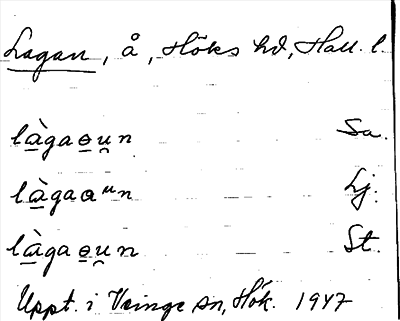 Lagan, å, Höks hd, Hall. l.
là̱gaɵ̱u̯n Sa.
là̱gaɑᵘn Lj.
là̱gaɵ̱u̯n St.
Uppt. i Veinge sn, Hök. 1947